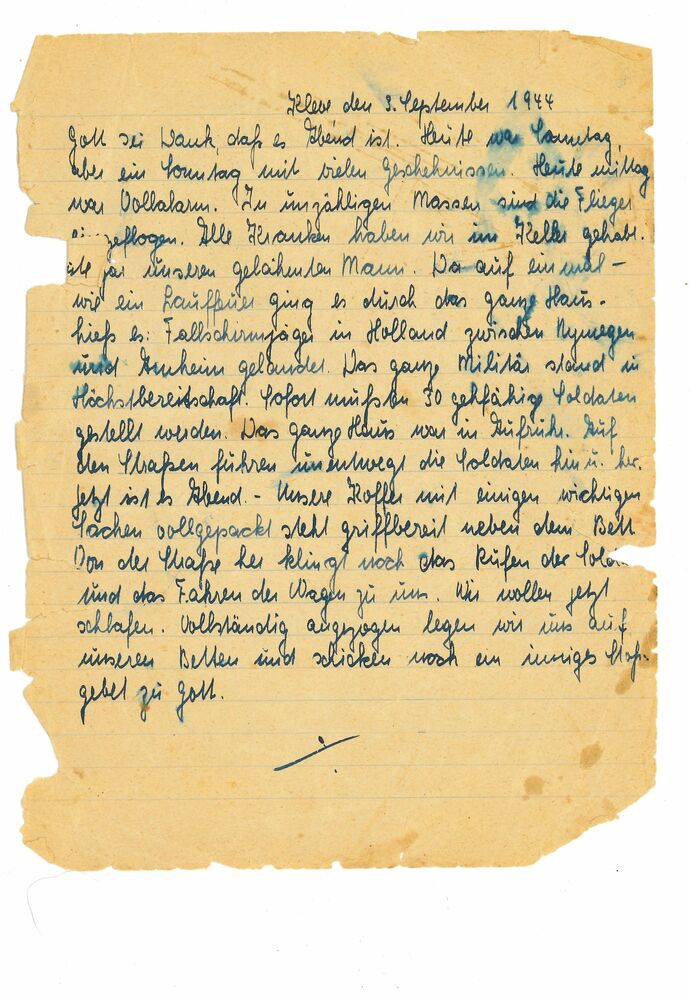 Kleve den 3. September 1944
Gott sei Dank, daß es Abend ist. Heute war Sonntag,
aber ein Sonntag mit vielen Geschehnissen. Heute mittag
war Vollalarm. In unzähligen Massen sind die Flieger
eingeflogen. Alle Kranken haben wir im Keller gehabt.
unseren gelähmten Mann. Da auf einmal –
wie ein Lauffeuer ging es durch das ganze Haus –
hieß es: Fallschirmjäger in Holland zwischen Nymegen
und Arnheim gelandet. Das ganze Militär stand in
Höchstbereitschaft. Sofort mußten 30 gehfähige Soldaten
gestellt werden. Das ganze Haus war in Aufruhr. Auf
den Straßen führen unentwegt die Soldaten hin u. her.
Jetzt ist es Abend. – Unsere Koffer mit einigen wichtigen
Sachen vollgepackt steht griffbereit neben dem Bett
Von der Straße her klingt noch das Rufen der
und das Fahren der Wagen zu uns. Wir wollen jetzt
schlafen. Vollständig angezogen legen wir uns auf
unseren Betten und schicken noch ein inniges Stoß-
gebet zu Gott.